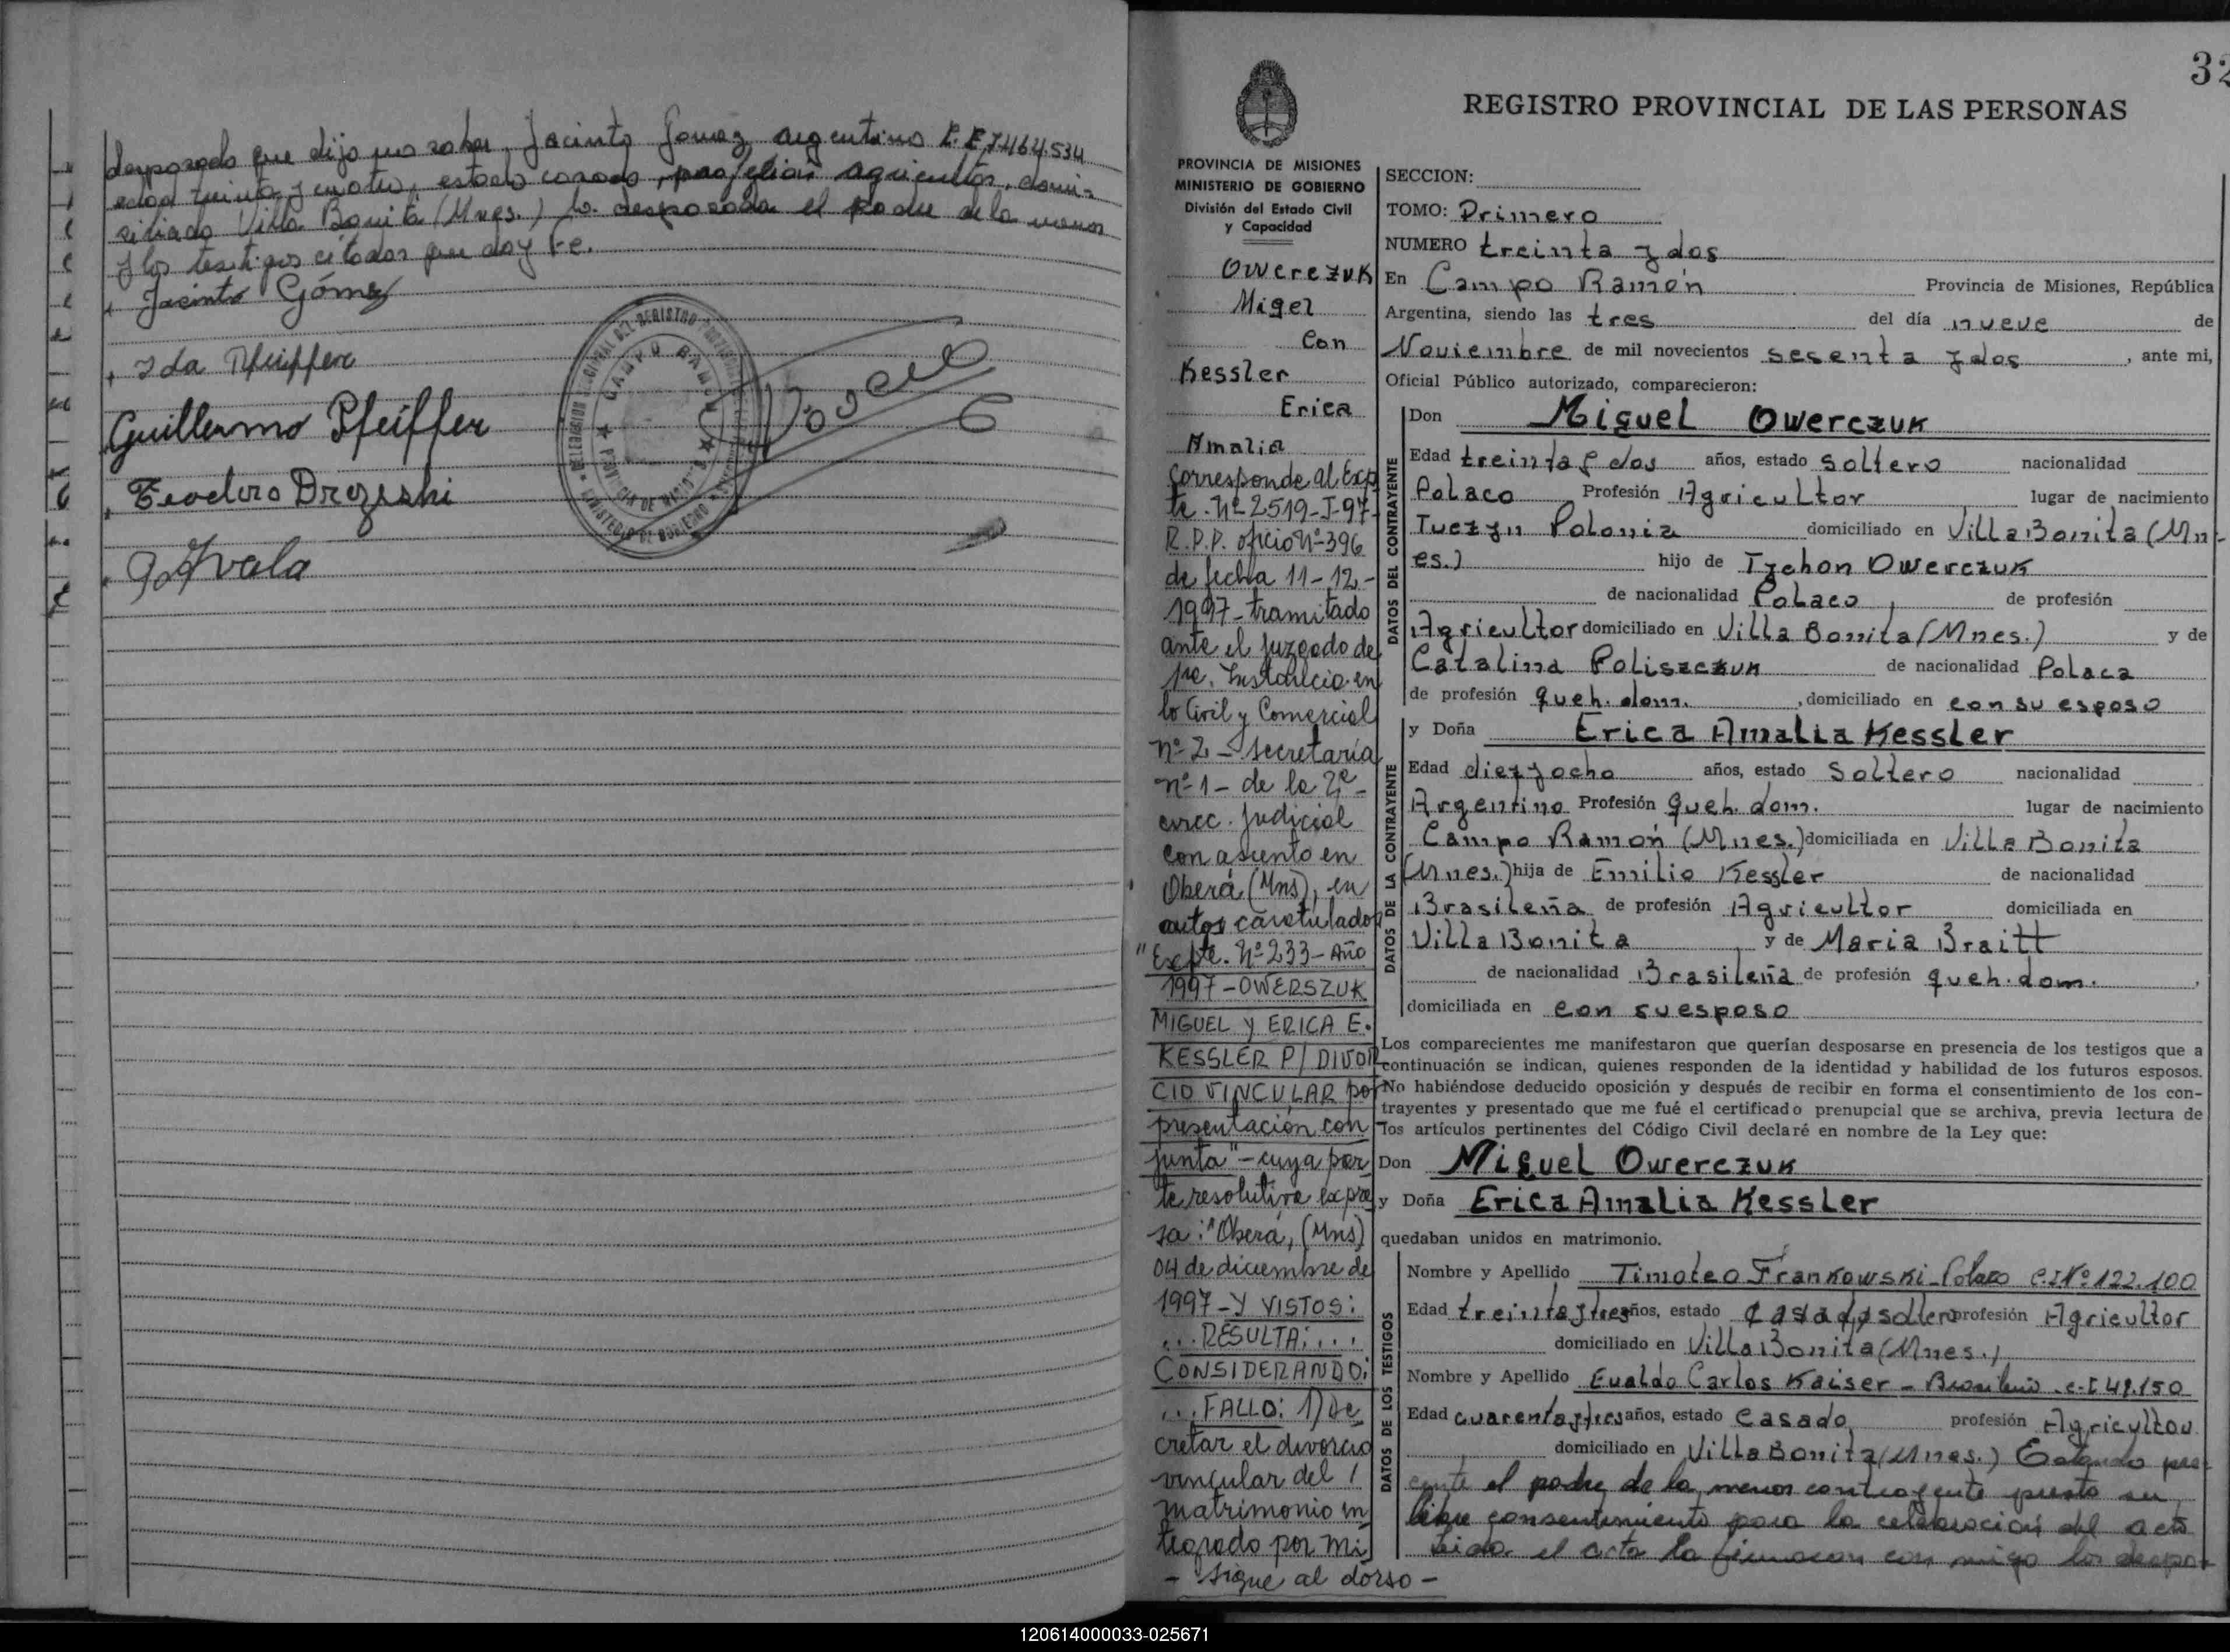 desposado que dijo no saber, Jacinto Gomez, argentino L.E. 7.464.534
edad treinta y cuatro, estado casado, profesion agricultor, domi-
ciliado Villa Bonita (Mnes.) la desposada el padre de la menor
y los testigos citados que doy Fe.
Jacinto Gómez
Ida Pfeiffer
Guillermo Pfeiffer
Teodoro Drozeski
CAMPO RAMON
32
REGISTRO PROVINCIAL DE LAS PERSONAS
PROVINCIA DE MISIONES
MINISTERIO DE GOBIERNO
División del Estado Civil
y Capacidad
Owerczuk
Migel
Con
Kessler
Erica
Amalia
Corresponde al Exp
te. Nº 2519-J-97-
R.P.P. oficio Nº 396
de fecha 11-12-
1997 - tramitado
ante el Juzgado de
1ra. Instancia en
lo Civil y Comercial
nº 2 - Secretaría
nº 1 - de la 2ª
circ. Judicial
con asiento en
Oberá (Mns), en
autos caratulados
"Expte. Nº 233 - Año
1997 - OWERSZUK
MIGUEL Y ERICA E.
KESSLER P/ DIVOR
CIO VINCULAR por
presentación con
junta" - cuya par
te resolutiva expre
sa: "Oberá, (Mns)
04 de diciembre de
1997 - Y VISTOS:
... RESULTA: ...
CONSIDERANDO:
... FALLO: 1) De
cretar el divorcio
vincular del
matrimonio in
tegrado por Mi
- sigue al dorso -
SECCION:
TOMO: Primero
NUMERO treinta y dos
En Campo Ramón Provincia de Misiones, República
Argentina, siendo las tres del día nueve de
Noviembre de mil novecientos sesenta y dos, ante mi,
Oficial Público autorizado, comparecieron:
DATOS DEL CONTRAYENTE
Don Miguel Owerczuk
Edad treinta y dos años, estado Soltero nacionalidad
Polaco Profesión Agricultor lugar de nacimiento
Tuczyn Polonia domiciliado en Villa Bonita (Mn-
es.) hijo de Tychon Owerczuk
de nacionalidad Polaco, de profesión
Agricultor domiciliado en Villa Bonita (Mnes.) y de
Catalina Poliszczuk de nacionalidad Polaca
de profesión queh. dom., domiciliado en con su esposo
DATOS DE LA CONTRAYENTE
y Doña Erica Amalia Kessler
Edad diez y ocho años, estado Soltero nacionalidad
Argentino Profesión queh. dom. lugar de nacimiento
Campo Ramón (Mnes.) domiciliada en Villa Bonita
(Mnes.) hija de Emilio Kessler de nacionalidad
Brasileña de profesión Agricultor domiciliada en
Villa Bonita y de Maria Braitt
de nacionalidad Brasileña de profesión queh. dom.,
domiciliada en con su esposo
Los comparecientes me manifestaron que querían desposarse en presencia de los testigos que a
continuación se indican, quienes responden de la identidad y habilidad de los futuros esposos.
No habiéndose deducido oposición y después de recibir en forma el consentimiento de los con-
trayentes y presentado que me fué el certificado prenupcial que se archiva, previa lectura de
los artículos pertinentes del Código Civil declaré en nombre de la Ley que:
Don Miguel Owerczuk
y Doña Erica Amalia Kessler
quedaban unidos en matrimonio.
DATOS DE LOS TESTIGOS
Nombre y Apellido Timoteo Frankowski - Polaco C.I Nº 122.100
Edad treinta y tres años, estado casado soltero profesión Agricultor
domiciliado en Villa Bonita (Mnes.)
Nombre y Apellido Evaldo Carlos Kaiser - Brasileño - C.I 49.150
Edad cuarenta y tres años, estado Casado profesión Agricultor
domiciliado en Villa Bonita (Mnes.) Estando pre-
sente el padre de la menor contrayente presto su
libre consentimiento para la celebracion del acto
Leida el acta la firmaron con migo los despo-
120614000033-025671